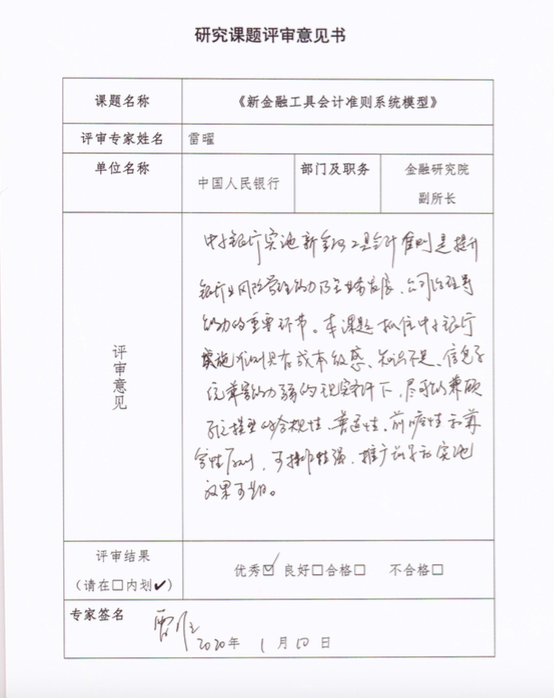 研究课题评审意见书
课题名称 《新金融工具会计准则系统模型》
评审专家姓名 雷曜
单位名称 中国人民银行 部门及职务 金融研究院
副所长
评审意见
中小银行实施新金融工具会计准则是提升
银行业风险管理能力及业务发展、公司治理等
能力的重要环节。本课题抓住中小银行
实施准则具有成本敏感、知识不足、信息系
统兼容能力弱的现实条件下,尽可能兼顾
模型的合规性、普适性、前瞻性和兼
容性原则,可操作性强,推广前景和实施
效果可期。
评审结果
(请在□内划✔) 优秀☑ 良好□合格□ 不合格□
专家签名 雷曜
2020年 1月10日